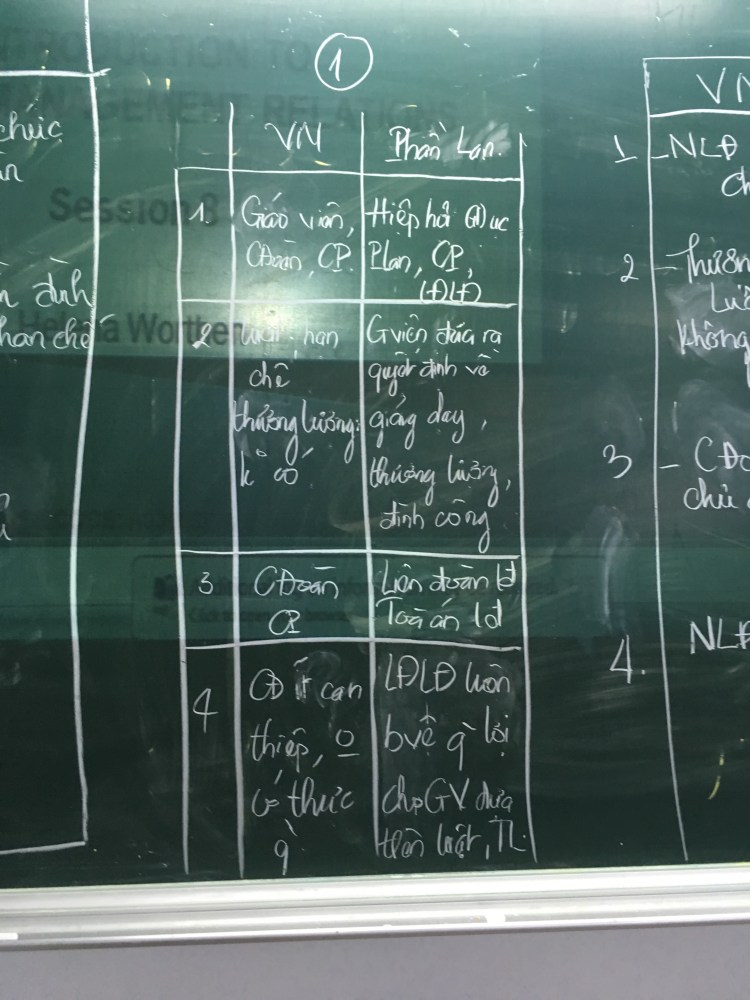 INTRODUCTION TO
MANAGEMENT RELATIONS
Session 3
Worthen
chức
đình
hạn chế
1
VN
Phần Lan.
1.
Giáo viên,
CĐoàn, CP.
Hiệp hội GDục
Plan, CP,
LĐLĐ
2
hạn
chế
thương lượng:
k có
Gviên đưa ra
quyết định về
giảng dạy,
thương lượng,
đình công
3
CĐoàn
CP
Liên đoàn lđ
Toà án lđ
4
CĐ ít can
thiệp, o
có thực
q
LĐLĐ luôn
bvệ q lợi
cho GV dựa
trên luật, TL
VN
1 - NLĐ
2 - Thương
Lượ
không
3 - CĐo
chủ
4. NLĐ